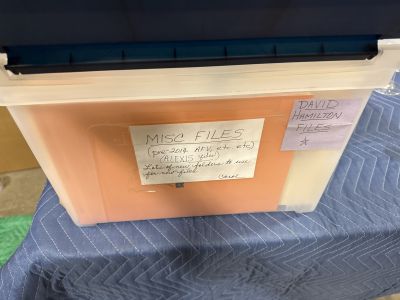 MISC FILES
(pre-2014 AFV, etc etc)
(ALEXIS files)
Lots of new folders to use
for new files
Carol
DAVID
HAMILTON
FILES
*